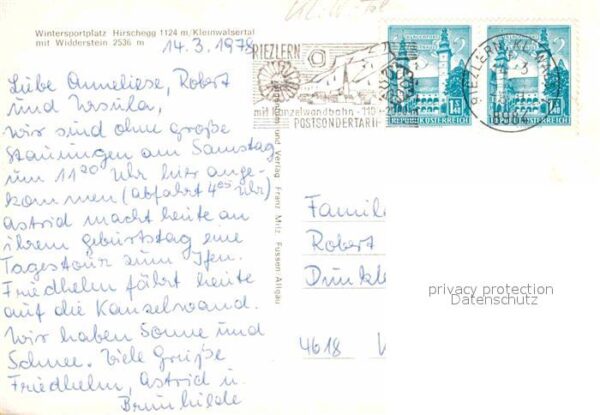 Wintersportplatz Hirschegg 1124 m/Kleinwalsertal
mit Widderstein 2536 m
14.3.1978
Liebe Anneliese, Robert
und Ursula,
wir sind ohne große
Stauungen am Samstag
um 11 20 Uhr hier ange-
kommen (abfahrt 4 05 Uhr)
Astrid macht heute an
ihrem Geburtstag eine
Tagestour zum Ifen.
Friedhelm fährt heute
auf die Kanzelwand.
Wir haben Sonne und
Schnee. Viele Grüße
Friedhelm, Astrid u.
Brunhilde
RIEZLERN
mit Kanzelwandbahn
POSTSONDERTARIF
REPUBLIK ÖSTERREICH
und Verlag Franz Milz, Füssen-Allgäu
Famili
Robert
Dunkl
4618
privacy protection
Datenschutz